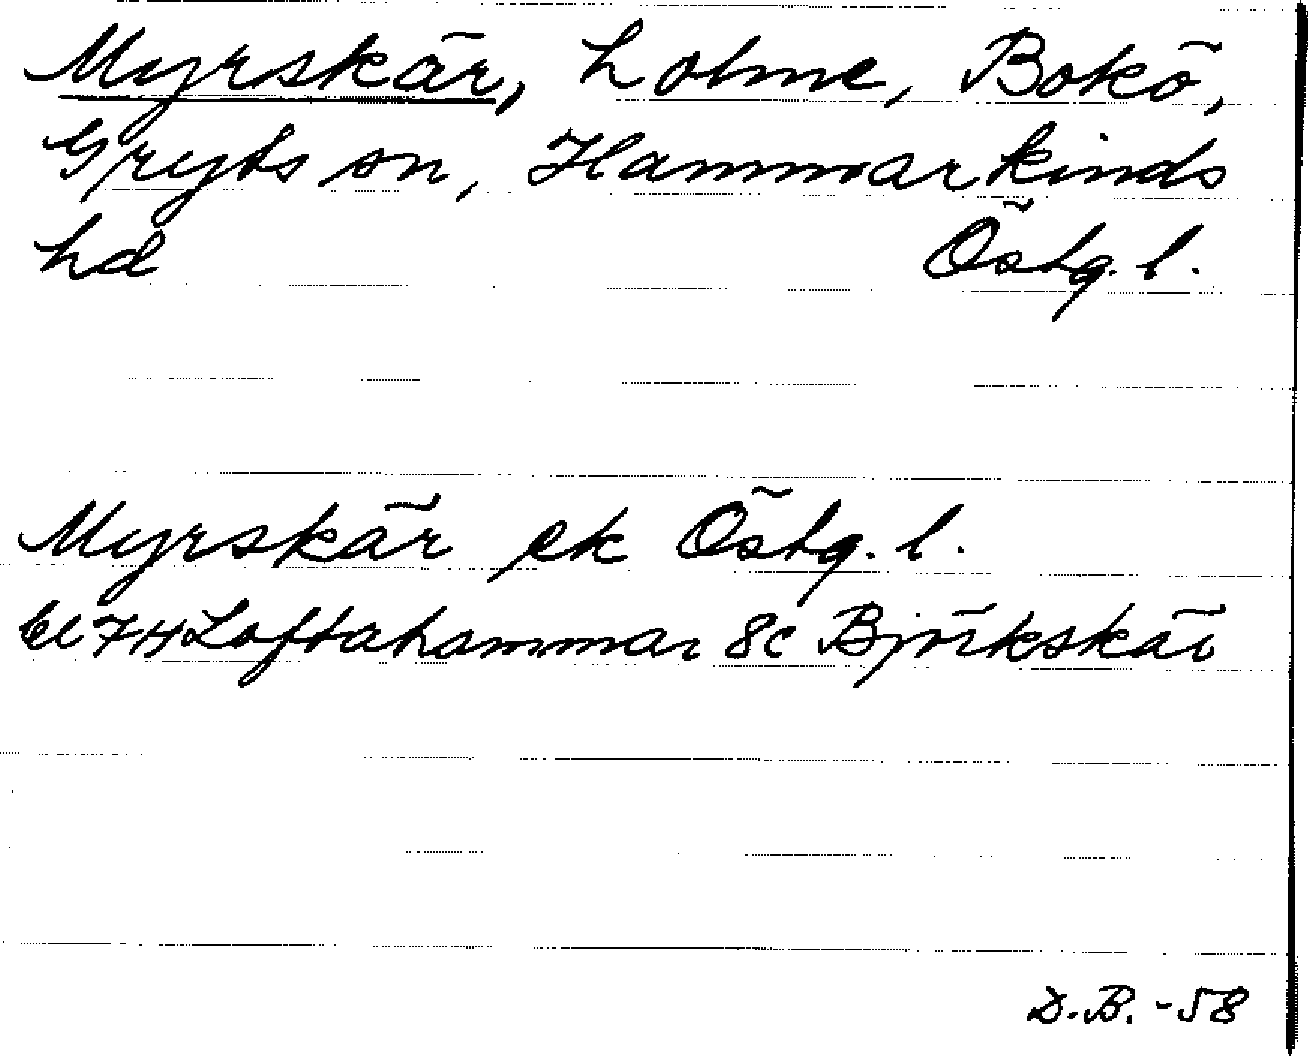 Myrskär, holme, Bokö,
Gryts sn, Hammarkinds
hd Östg. l.
Myrskär ek Östg. l.
bl 7H Loftahammar 8c Björkskär
D.B. -58